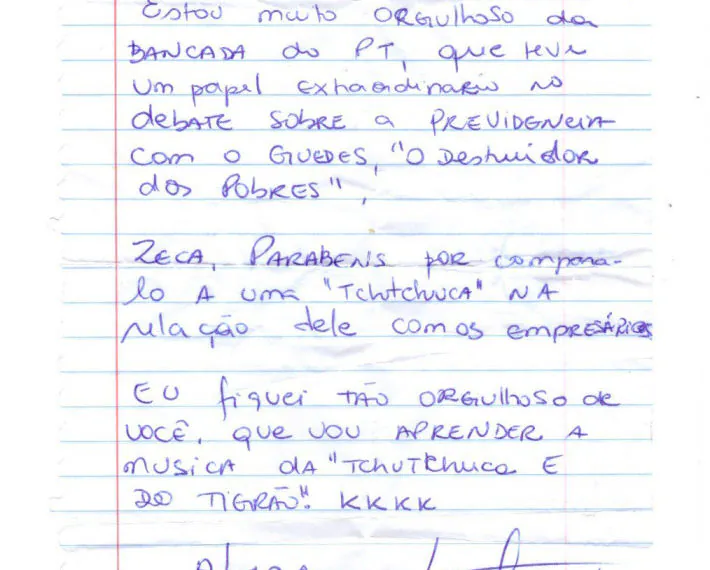 Estou muito ORGulhoso da
BANCADA do PT, que teve
um papel extraordinario no
debATE SObRE a PREVIDENCIA
com o GUEDES, "O Destruidor
dos PObRES",
ZECA, PARABENS por compara-
lo A uma "Tchutchuca" NA
relação dele com os empRESÁRIOS
EU fiquei TÃO ORGulhoso de
VOCÊ, que vou APRENDER A
musica dA "TchuTchuca E
DO TIGRÃO". KKKK